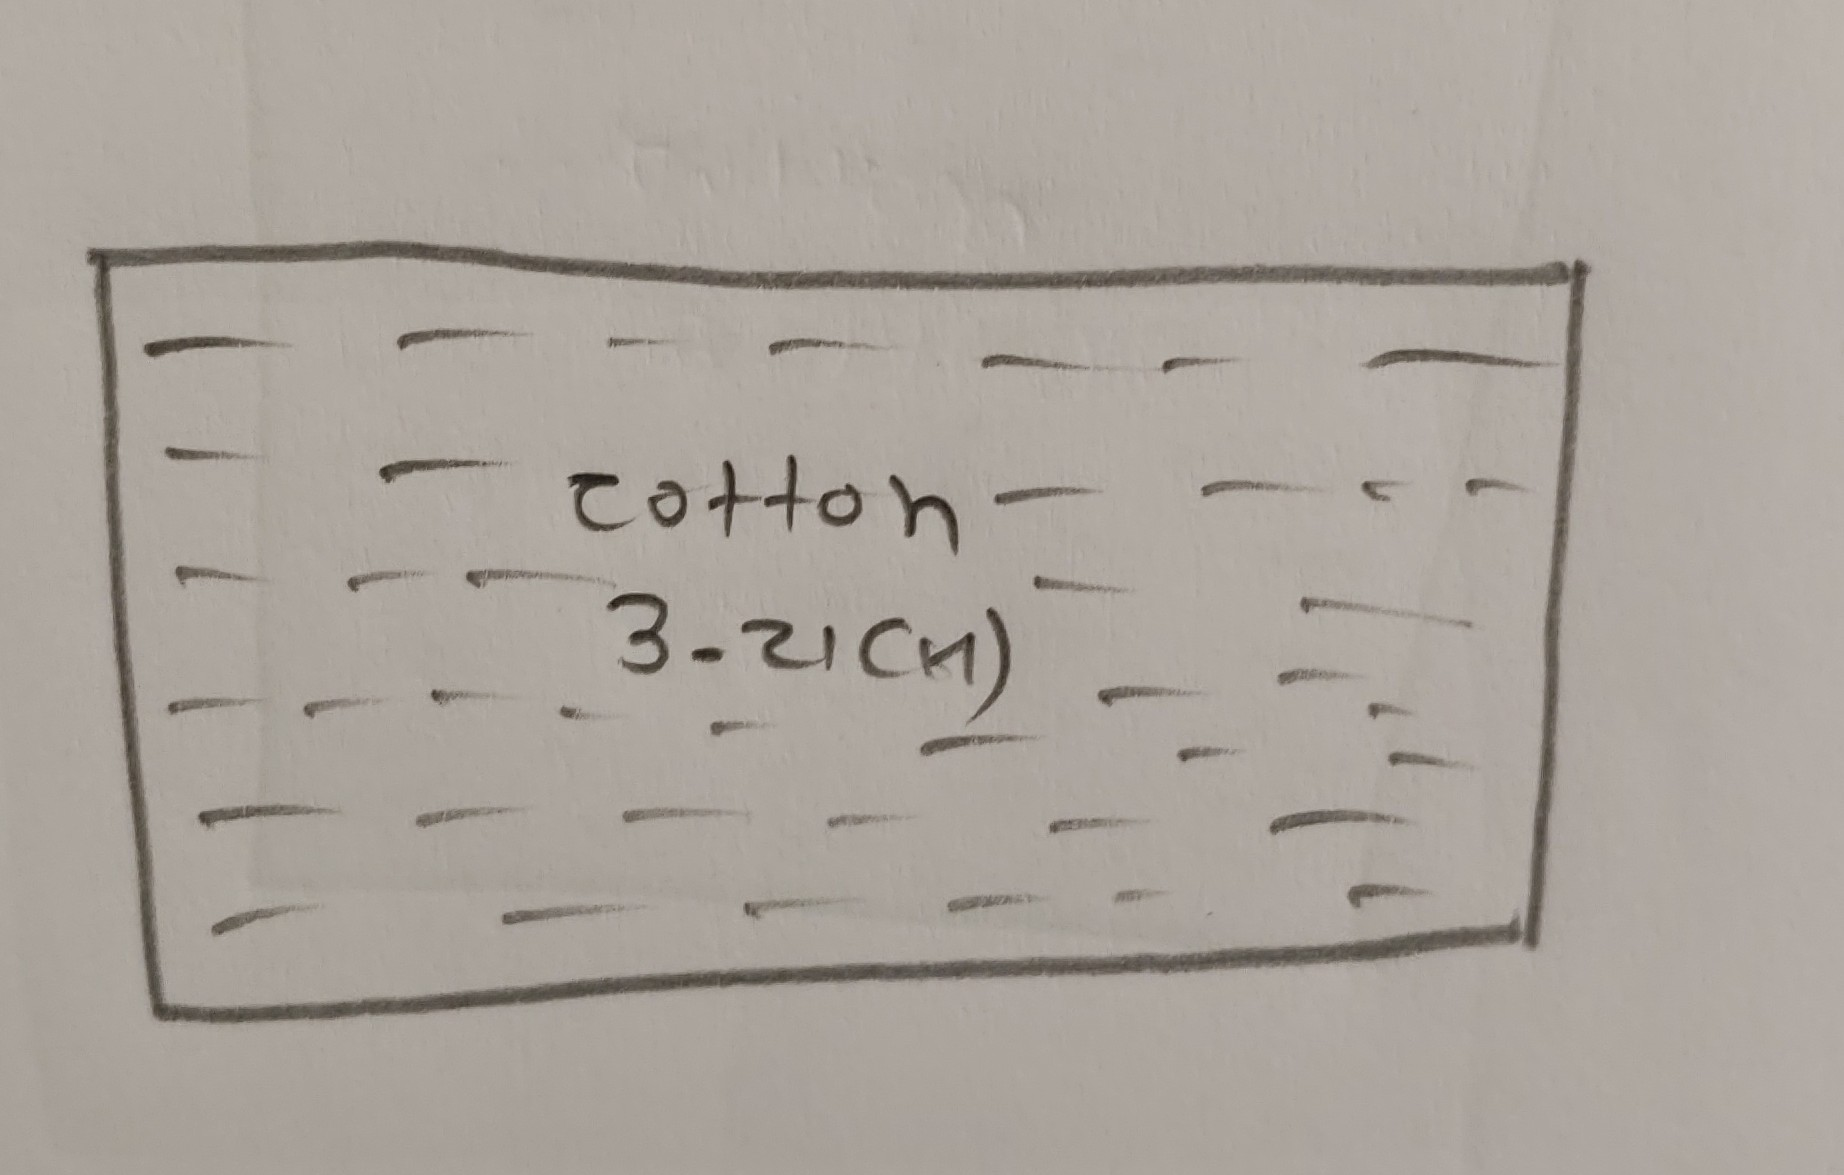 cotton
3-21(H)